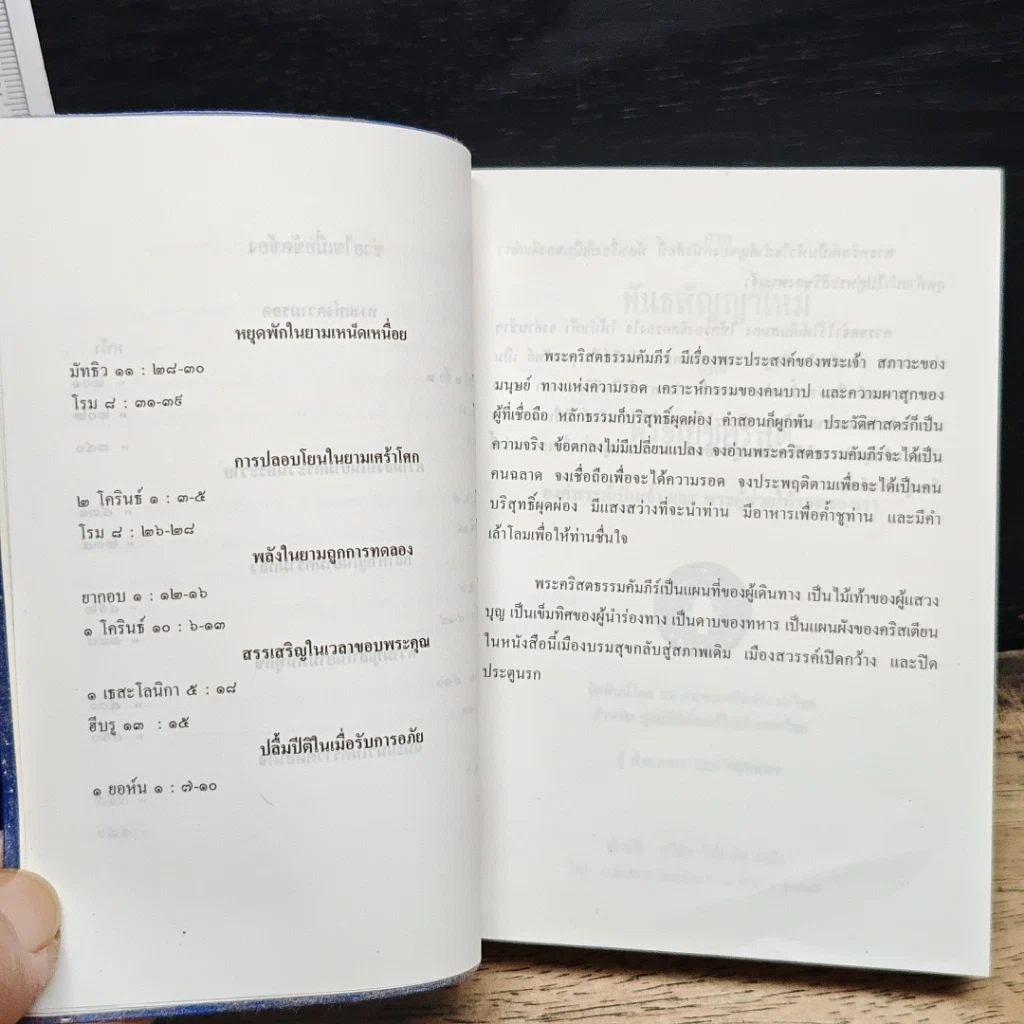 หยุดพักในยามเหน็ดเหนื่อย
มัทธิว ๑๑ : ๒๘-๓๐
โรม ๘ : ๓๑-๓๙
การปลอบโยนในยามเศร้าโศก
๒ โครินธ์ ๑ : ๓-๕
โรม ๘ : ๒๖-๒๘
พลังในยามถูกการทดลอง
ยากอบ ๑ : ๑๒-๑๖
๑ โครินธ์ ๑๐ : ๖-๑๓
สรรเสริญในเวลาขอบพระคุณ
๑ เธสะโลนิกา ๕ : ๑๘
ฮีบรู ๑๓ : ๑๕
ปลื้มปีติในเมื่อรับการอภัย
๑ ยอห์น ๑ : ๗-๑๐
พระคริสตธรรมคัมภีร์ มีเรื่องพระประสงค์ของพระเจ้า สภาวะของ
มนุษย์ ทางแห่งความรอด เคราะห์กรรมของคนบาป และความผาสุกของ
ผู้ที่เชื่อถือ หลักธรรมก็บริสุทธิ์ผุดผ่อง คำสอนก็ผูกพัน ประวัติศาสตร์ก็เป็น
ความจริง ข้อตกลงไม่มีเปลี่ยนแปลง จงอ่านพระคริสตธรรมคัมภีร์จะได้เป็น
คนฉลาด จงเชื่อถือเพื่อจะได้ความรอด จงประพฤติตามเพื่อจะได้เป็นคน
บริสุทธิ์ผุดผ่อง มีแสงสว่างที่จะนำท่าน มีอาหารเพื่อค้ำชูท่าน และมีคำ
เล้าโลมเพื่อให้ท่านชื่นใจ
พระคริสตธรรมคัมภีร์เป็นแผนที่ของผู้เดินทาง เป็นไม้เท้าของผู้แสวง
บุญ เป็นเข็มทิศของผู้นำร่องทาง เป็นดาบของทหาร เป็นแผนผังของคริสเตียน
ในหนังสือนี้เมืองบรมสุขกลับสู่สภาพเดิม เมืองสวรรค์เปิดกว้าง และปิด
ประตูนรก